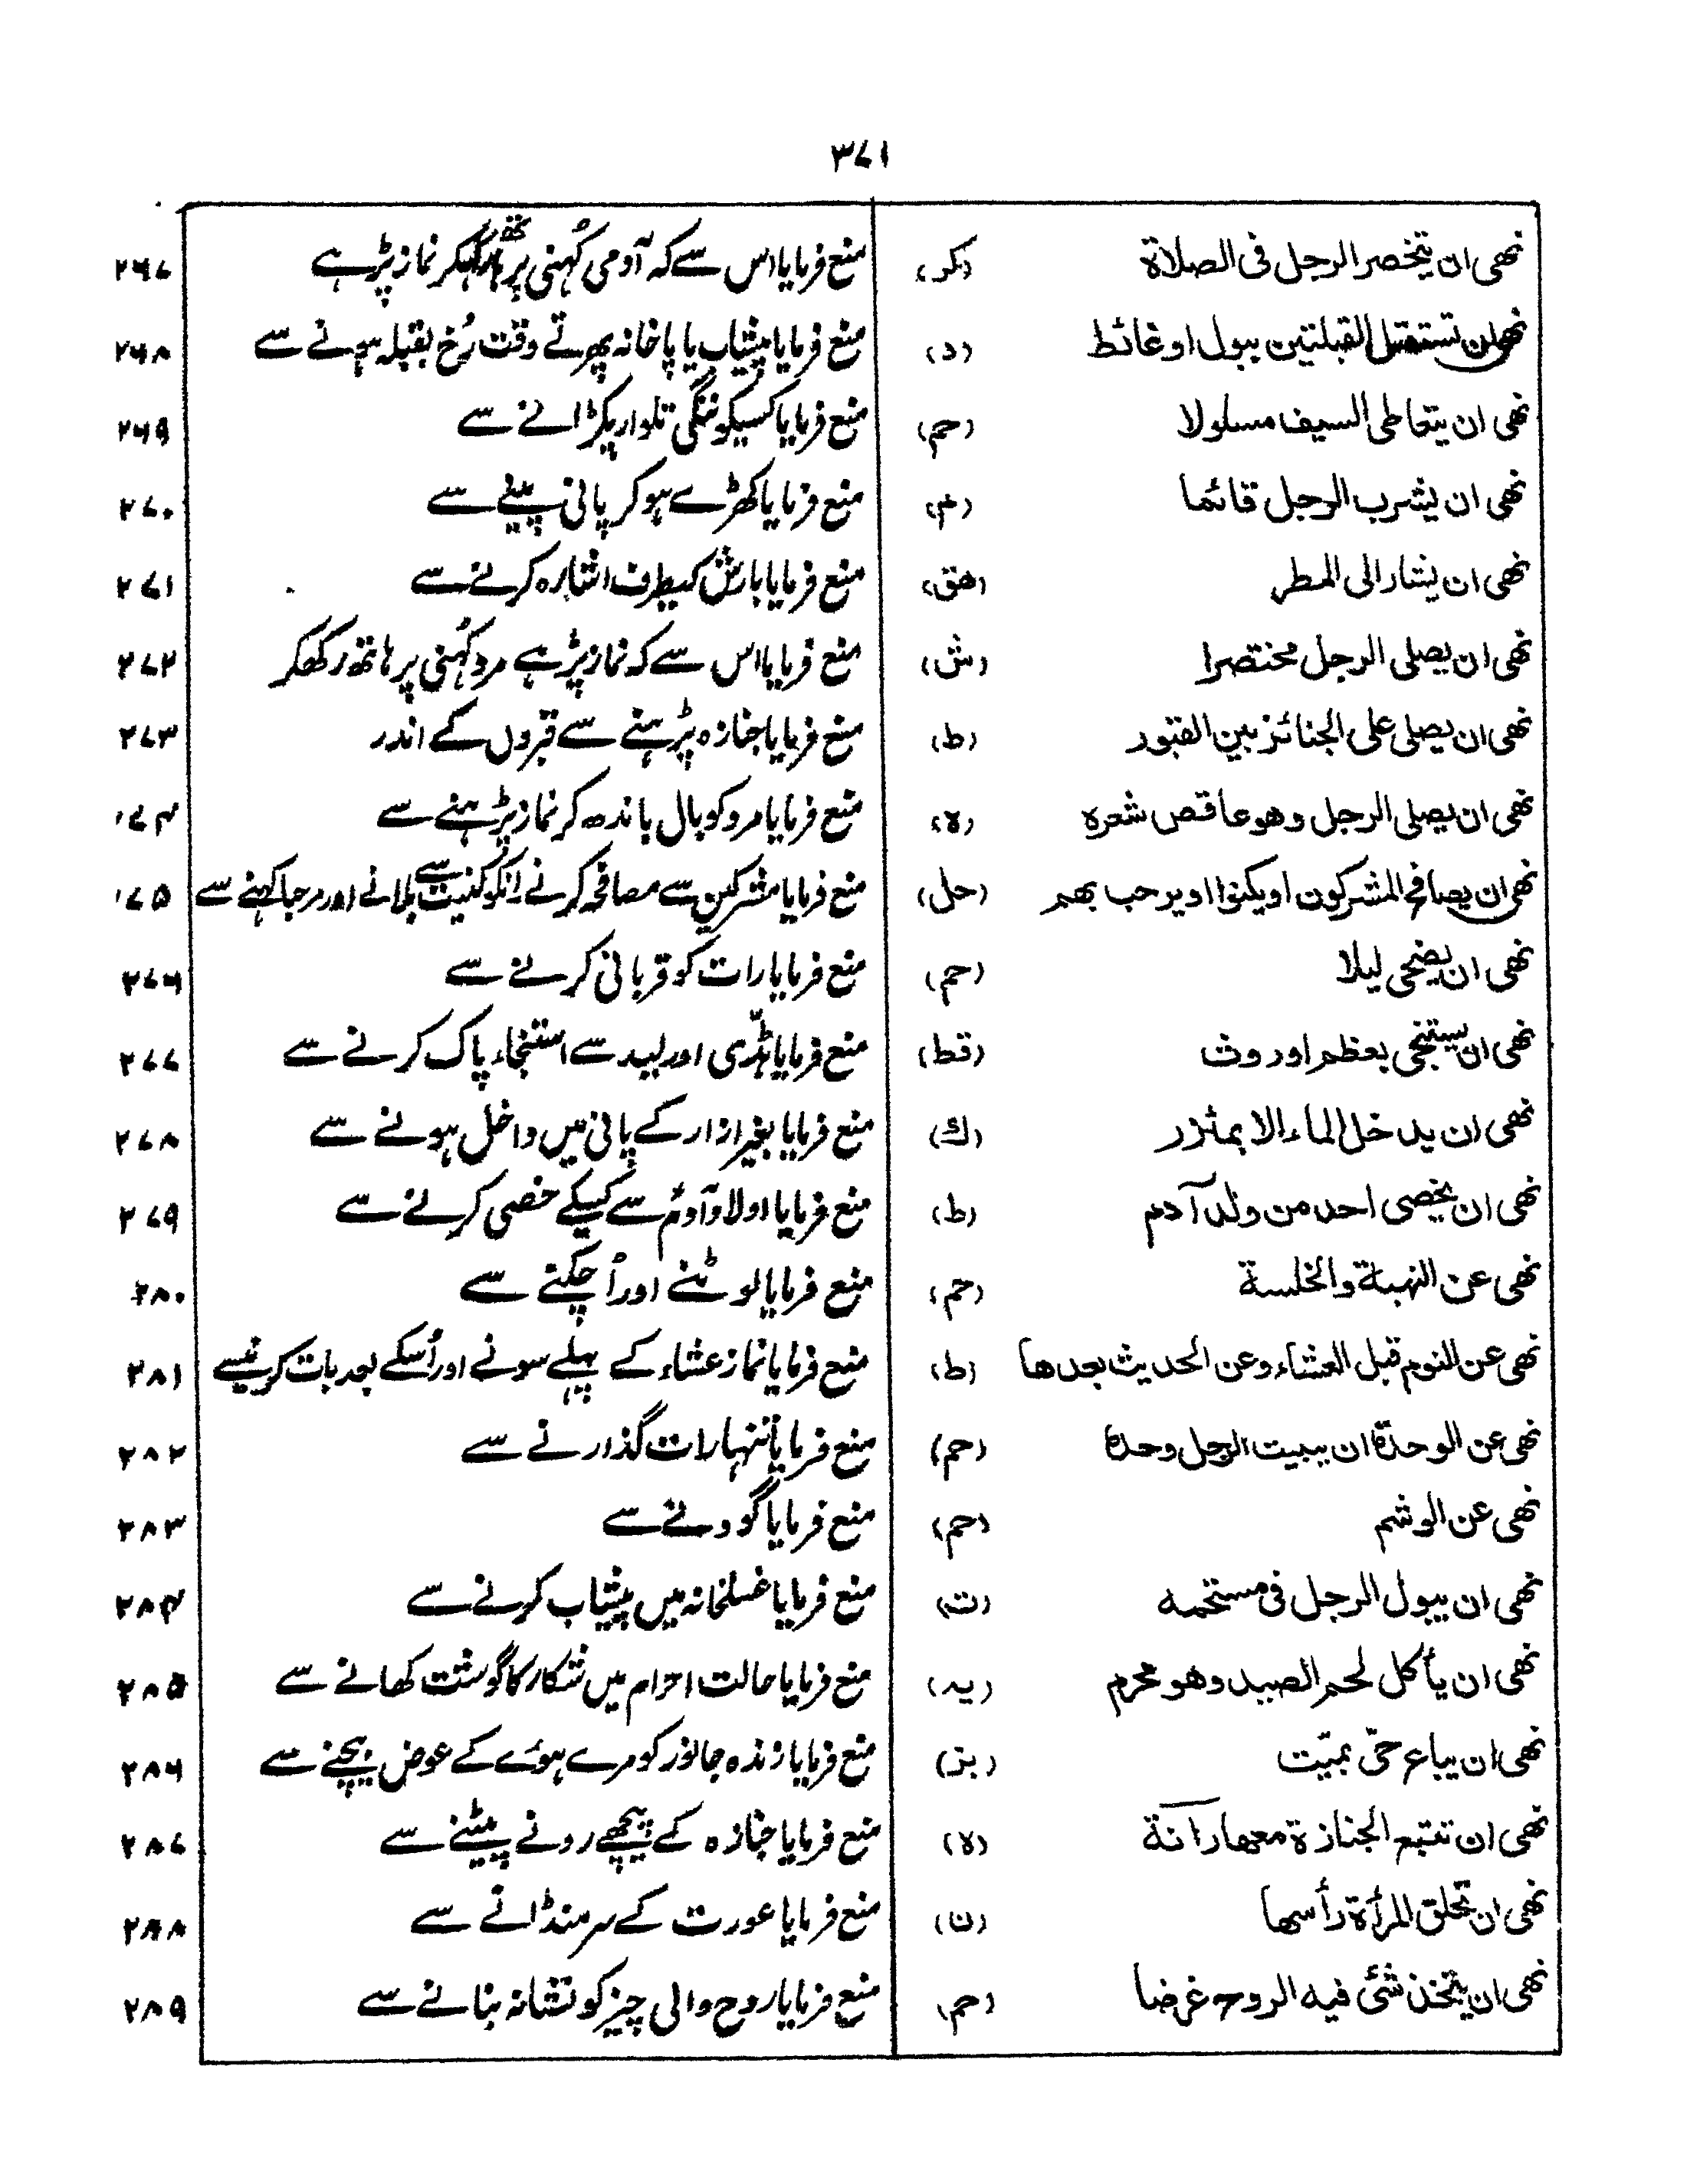 ۳۷۱
نهى ان يتخصر الرجل فى الصلاة (كر) منع فرمایا اس سے کہ آدمی کُہنی پر ہاتھ رکہکر نماز پڑہے ۲۶۷
نهى ان تستقبل القبلتين ببول او غائط (د) منع فرمایا پیشاب یا پاخانہ پھرتے وقت رُخ بقبلہ ہونے سے ۲۶۸
نهى ان يتعاطى السيف مسلولا (حم) منع فرمایا کسیکو ننگی تلوار پکڑانے سے ۲۶۹
نهى ان يشرب الرجل قائما (م) منع فرمایا کھڑے ہو کر پانی پینے سے ۲۷۰
نهى ان يشار الى المطر (هق) منع فرمایا بارش کیطرف اشارہ کرنے سے ۲۷۱
نهى ان يصلى الرجل مختصرا (ش) منع فرمایا اس سے کہ نماز پڑہے مرد کُہنی پر ہاتھ رکھکر ۲۷۲
نهى ان يصلى على الجنائز بين القبور (ط) منع فرمایا جنازہ پڑہنے سے قبروں کے اندر ۲۷۳
نهى ان يصلى الرجل وهو عاقص شعره (ه) منع فرمایا مرد کو بال باندھ کر نماز پڑہنے سے ۲۷۴
نهى ان يصافح المشركون او يكنوا او يرحب بهم (حل) منع فرمایا مشرکین سے مصافحہ کرنے انکو کنیت سے بلانے اور مرحبا کہنے سے ۲۷۵
نهى ان يضحى ليلا (حم) منع فرمایا رات کو قربانی کرنے سے ۲۷۶
نهى ان يستنجى بعظم او روث (قط) منع فرمایا ہڈّی اور لید سے استنجاء پاک کرنے سے ۲۷۷
نهى ان يدخل الماء الا بمئزر (ك) منع فرمایا بغیر ازار کے پانی میں داخل ہونے سے ۲۷۸
نهى ان يخصى احد من ولد آدم (ط) منع فرمایا اولاد آدم سے کسیکے خصی کرنے سے ۲۷۹
نهى عن النهبة والخلسة (حم) منع فرمایا لوٹنے اور اُچکنے سے ۲۸۰
نهى عن النوم قبل العشاء وعن الحديث بعدها (ط) منع فرمایا نماز عشاء کے پہلے سونے اور اُسکے بعد بات کرنیسے ۲۸۱
نهى عن الوحدة ان يبيت الرجل وحدة (حم) منع فرمایا تنہا رات گذارنے سے ۲۸۲
نهى عن الوشم (حم) منع فرمایا گودنے سے ۲۸۳
نهى ان يبول الرجل فى مستحمه (ت) منع فرمایا غسلخانہ میں پیشاب کرنے سے ۲۸۴
نهى ان يأكل لحم الصيد وهو محرم (يد) منع فرمایا حالت احرام میں شکار کا گوشت کھانے سے ۲۸۵
نهى ان يباع حىّ بميّت (بز) منع فرمایا زندہ جانور کو مرے ہوئے کے عوض بیچنے سے ۲۸۶
نهى ان تتبع الجنازة معها رآنة (ه) منع فرمایا جنازہ کے پیچھے رونے پیٹنے سے ۲۸۷
نهى ان تحلق المرأة رأسها (ن) منع فرمایا عورت کے سر منڈانے سے ۲۸۸
نهى ان يتخذ شئى فيه الروح غرضا (حم) منع فرمایا روح والی چیز کو نشانہ بنانے سے ۲۸۹